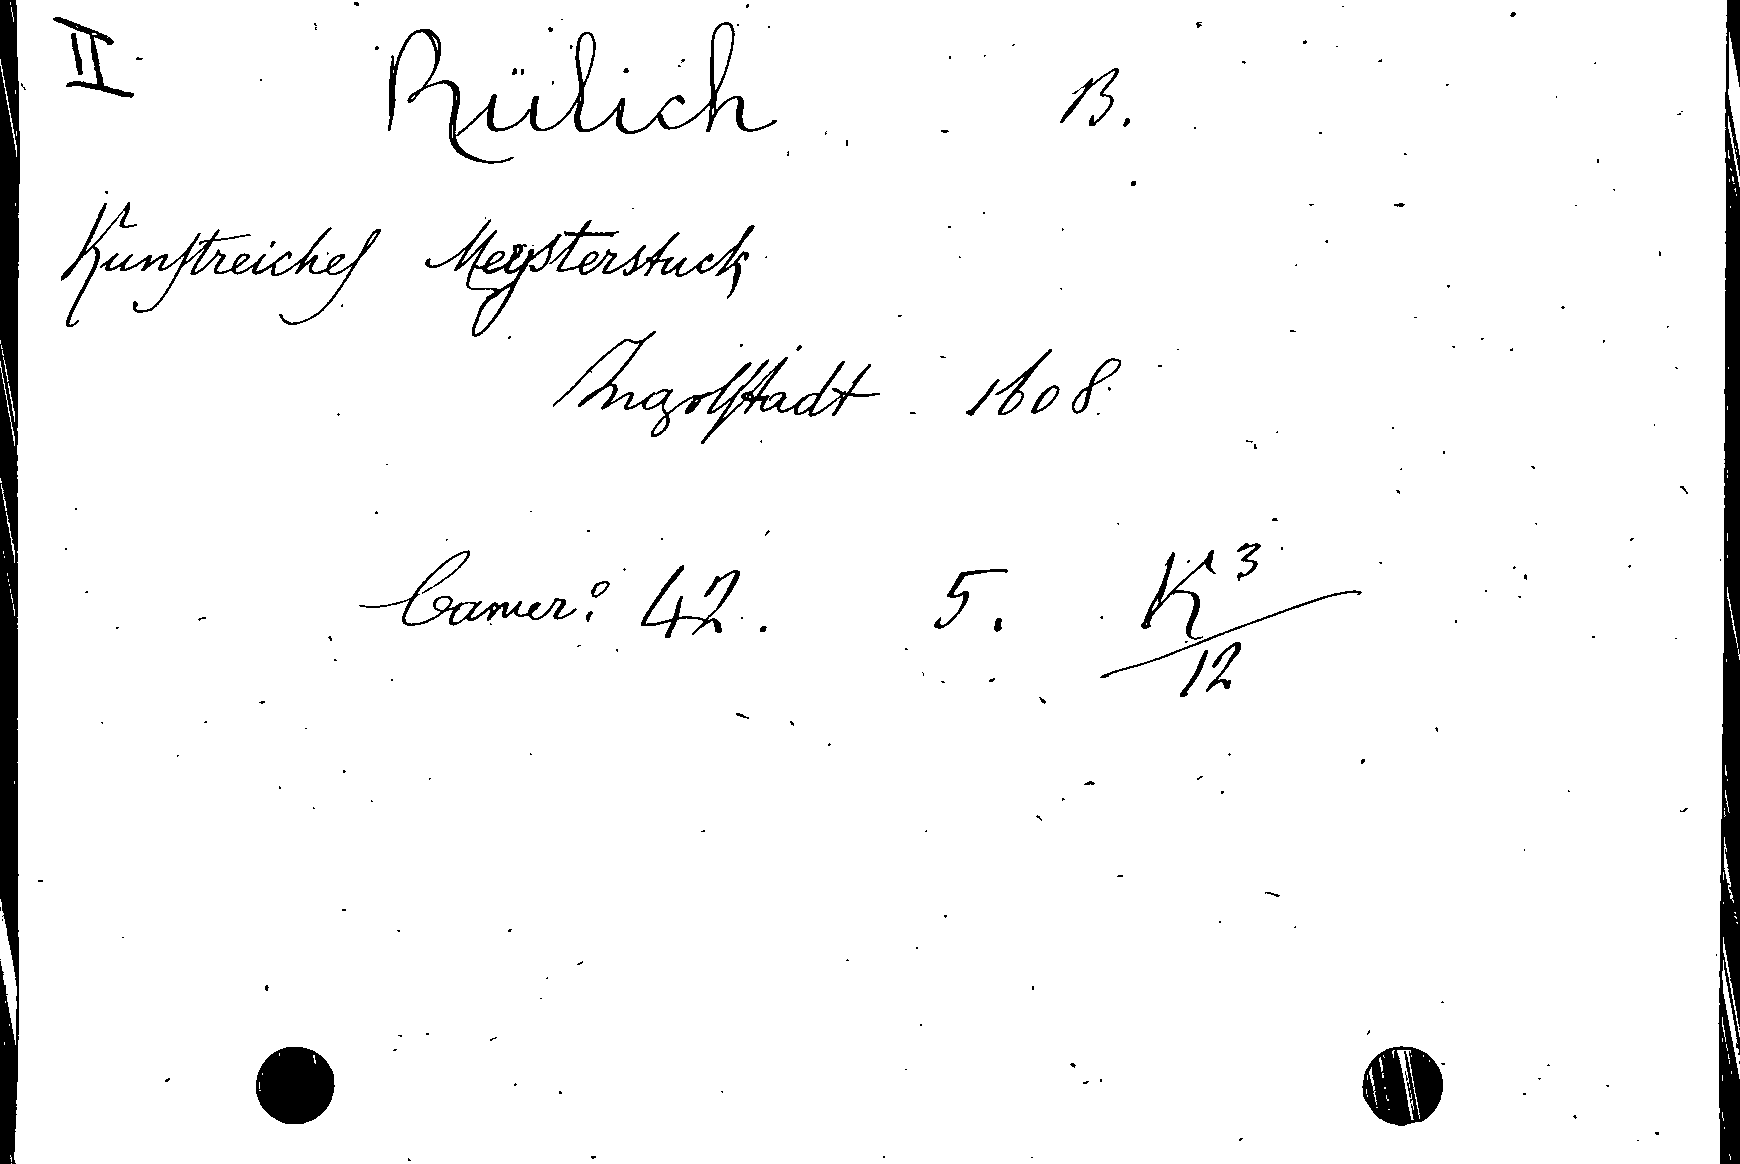 II Rülich B.
Kunstreiches Meysterstuck
Ingolstadt 1608.
Camer: 42. 5. K³/12